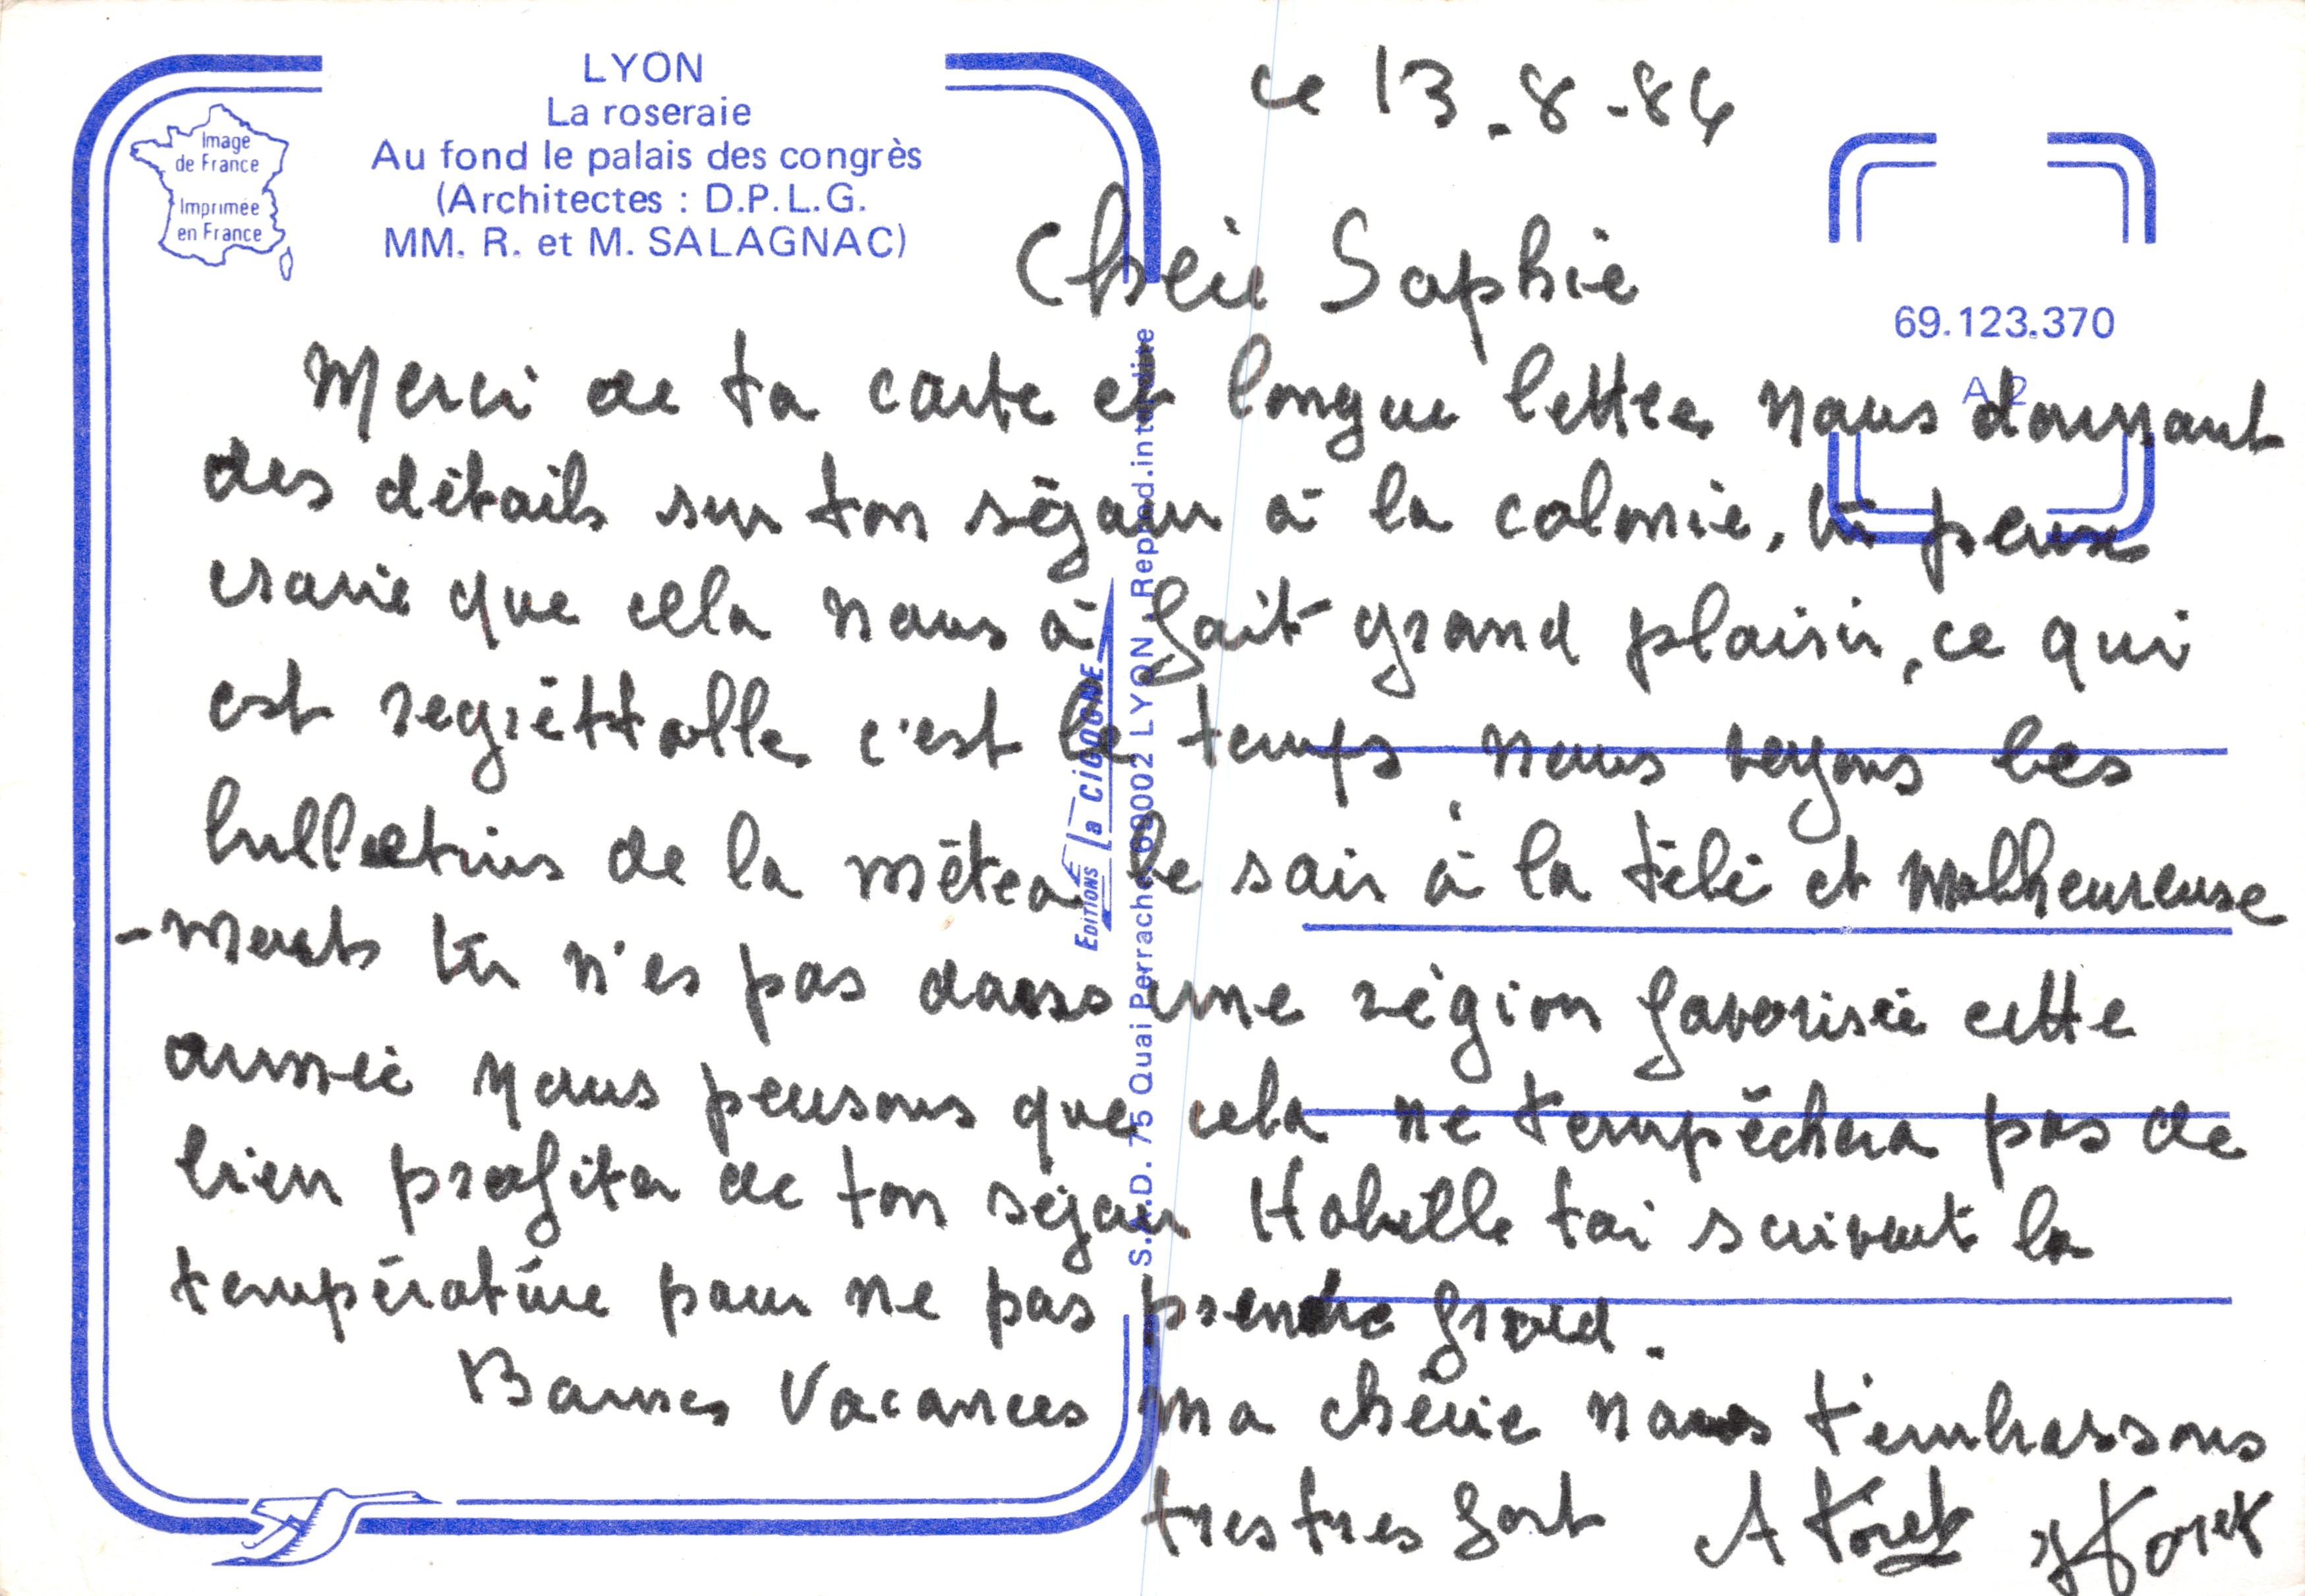 LYON
La roseraie
Au fond le palais des congrès
(Architectes : D.P.L.G.
MM. R. et M. SALAGNAC)
Image
de France
Imprimée
en France
69.123.370
A 2
EDITIONS La CIGOGNE
S.A.D. 75 Quai Perrache 69002 LYON - Reprod.interdite
ce 13.8-84
Chère Sophie
Merci de ta carte et longue lettre nous donnant
des détails sur ton séjour à la colonie, tu peux
croire que cela nous à fait grand plaisir, ce qui
est regréttable c'est le temps nous voyons les
bulletins de la météo le soir à la télé et malheureuse
-ments tu n'es pas dans une région favorisée cette
année nous pensons que cela ne t'empêchera pas de
bien profiter de ton séjour Habille toi suivant la
température pour ne pas prendre froid.
Bonnes Vacances ma chérie nous t'embrassons
tres tres fort A